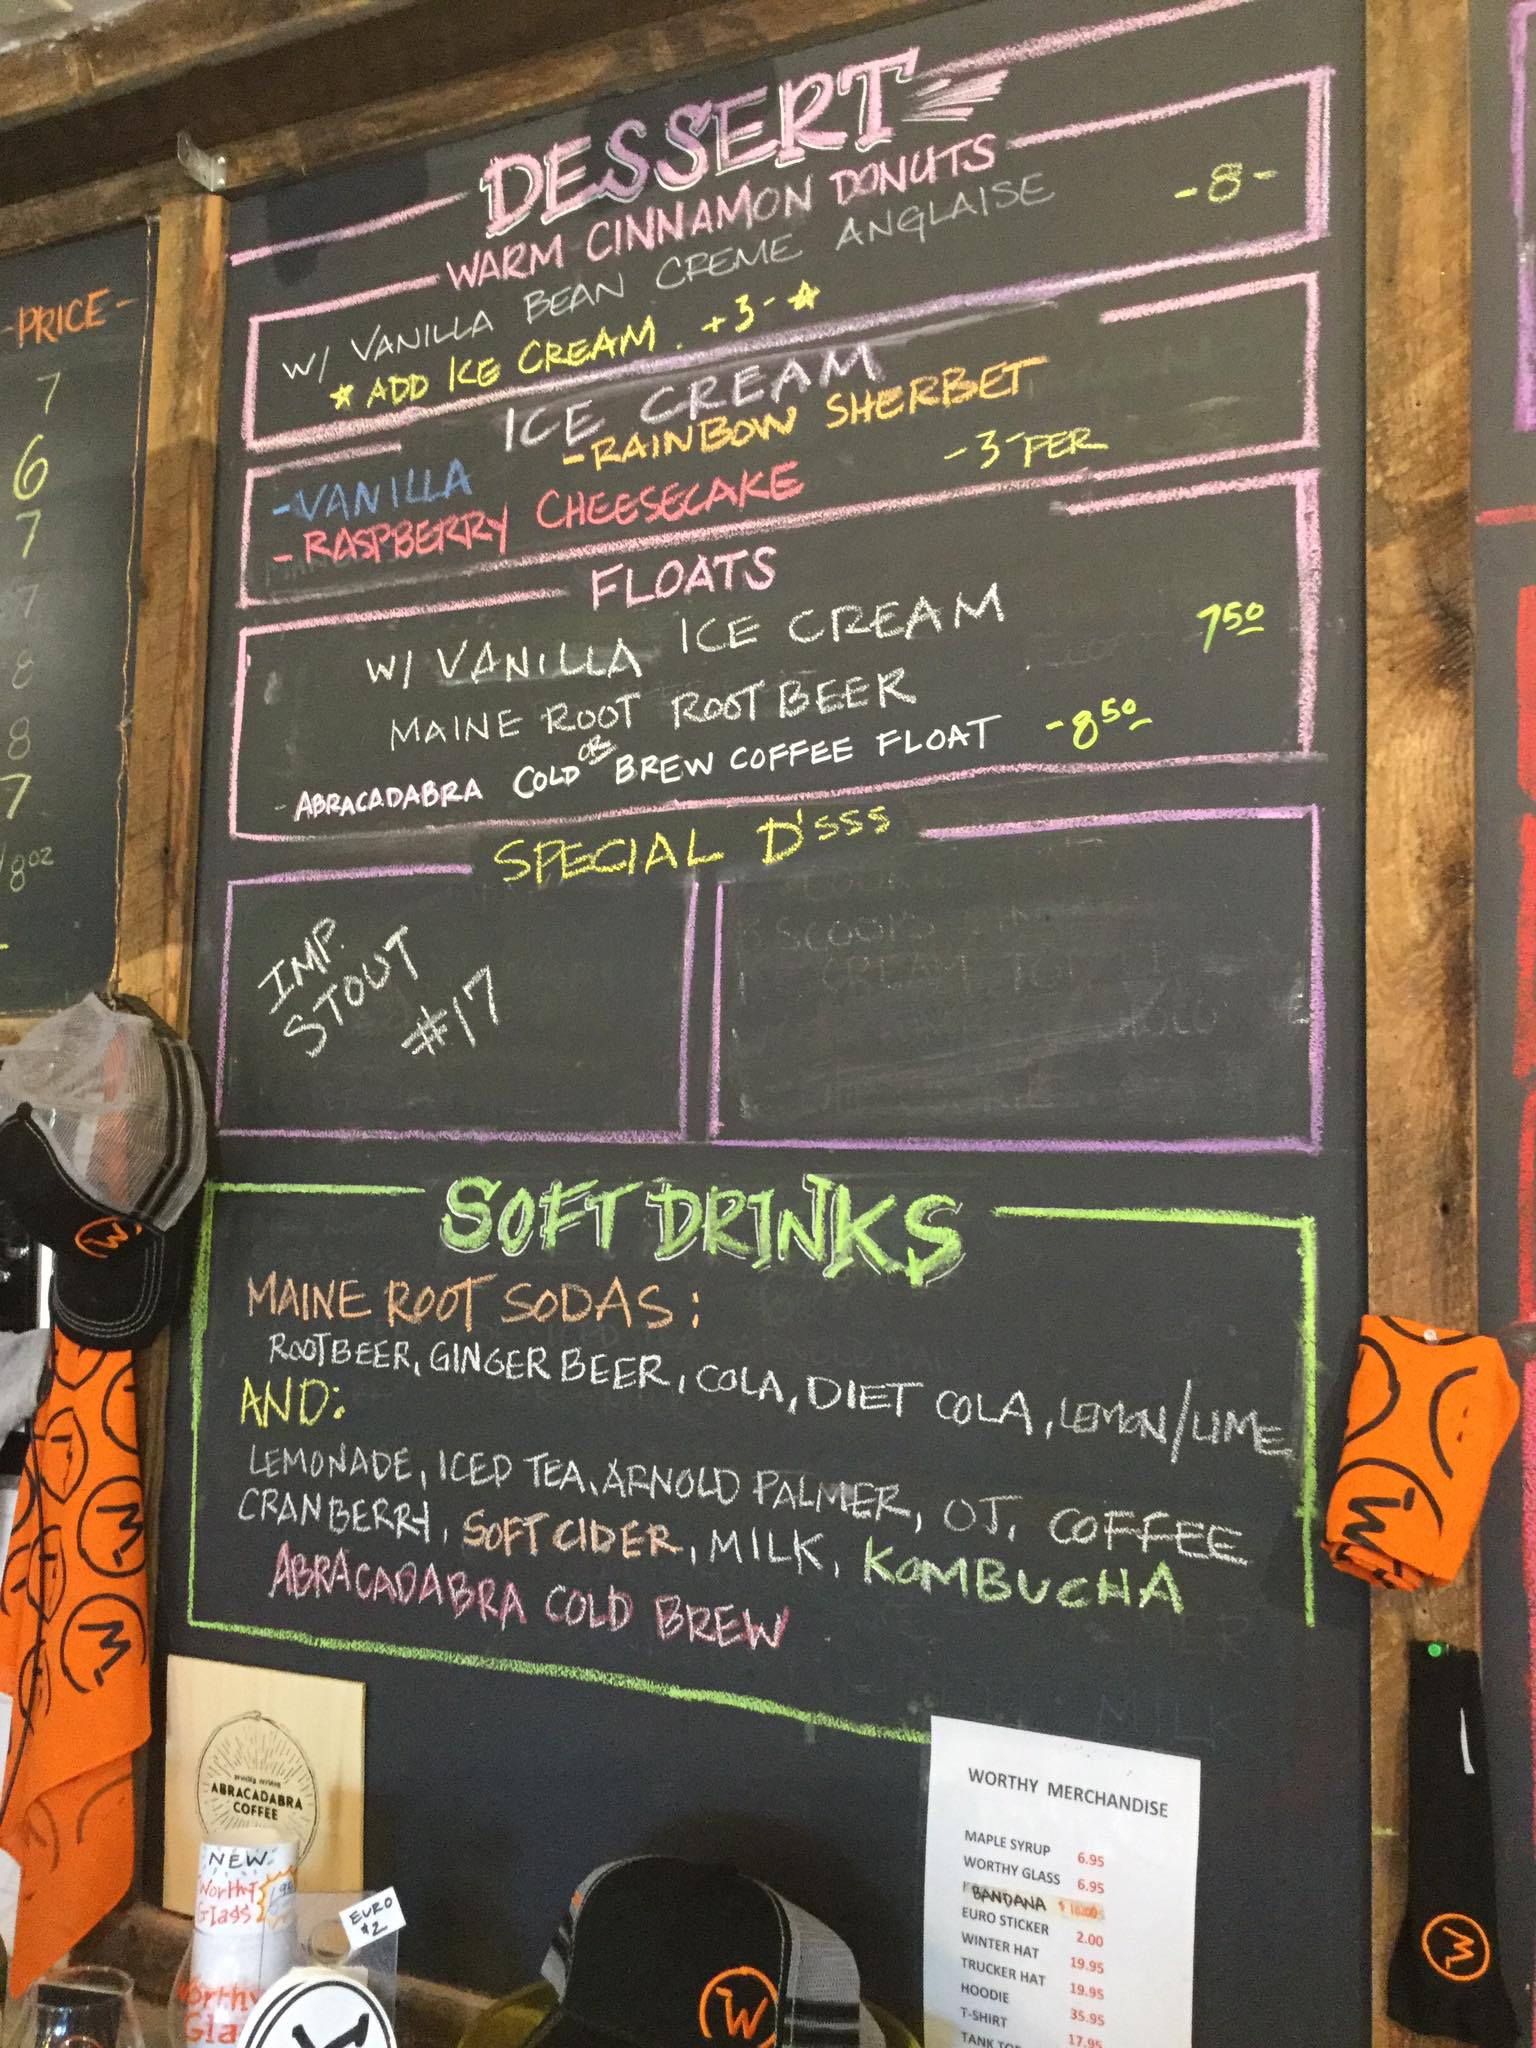 -PRICE-
7
6
7
7
8
8
7
8oz
DESSERT
WARM CINNAMON DONUTS
W/ VANILLA BEAN CREME ANGLAISE -8-
☆ ADD ICE CREAM. +3- ☆
ICE CREAM
-VANILLA -RAINBOW SHERBET
-RASPBERRY CHEESECAKE -3- PER
FLOATS
W/ VANILLA ICE CREAM
MAINE ROOT ROOTBEER 7 50
OR
- ABRACADABRA COLD BREW COFFEE FLOAT -8 50
SPECIAL D'SSS
IMP.
STOUT
#17
SOFT DRINKS
MAINE ROOT SODAS:
ROOTBEER, GINGER BEER, COLA, DIET COLA, LEMON/LIME
AND:
LEMONADE, ICED TEA, ARNOLD PALMER, OJ, COFFEE
CRANBERRY, SOFT CIDER, MILK, KOMBUCHA
ABRACADABRA COLD BREW
ABRACADABRA
COFFEE
NEW
Worthy
Glass
EURO
$2
Worthy
WORTHY MERCHANDISE
MAPLE SYRUP 6.95
WORTHY GLASS 6.95
BANDANA
EURO STICKER 2.00
WINTER HAT 19.95
TRUCKER HAT 19.95
HOODIE 35.95
T-SHIRT 17.95
TANK